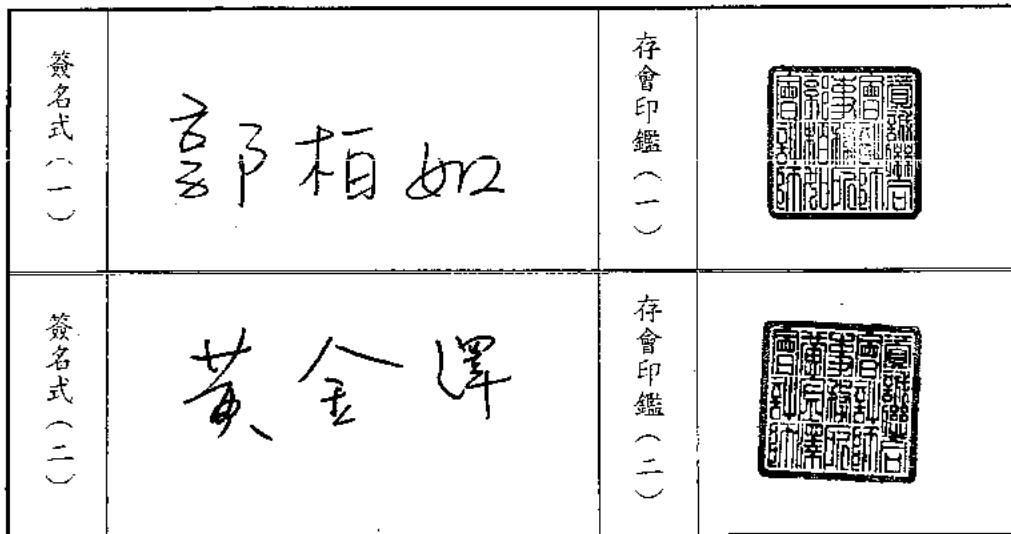 簽名式(一)
郭柏如
存會印鑑(一)
資誠聯合
會計師
事務所
郭柏如
會計師
簽名式(二)
黃金澤
存會印鑑(二)
資誠聯合
會計師
事務所
黃金澤
會計師